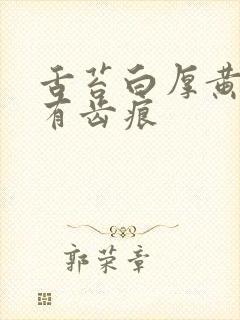 舌苔白厚黄
有齿痕
郭荣章